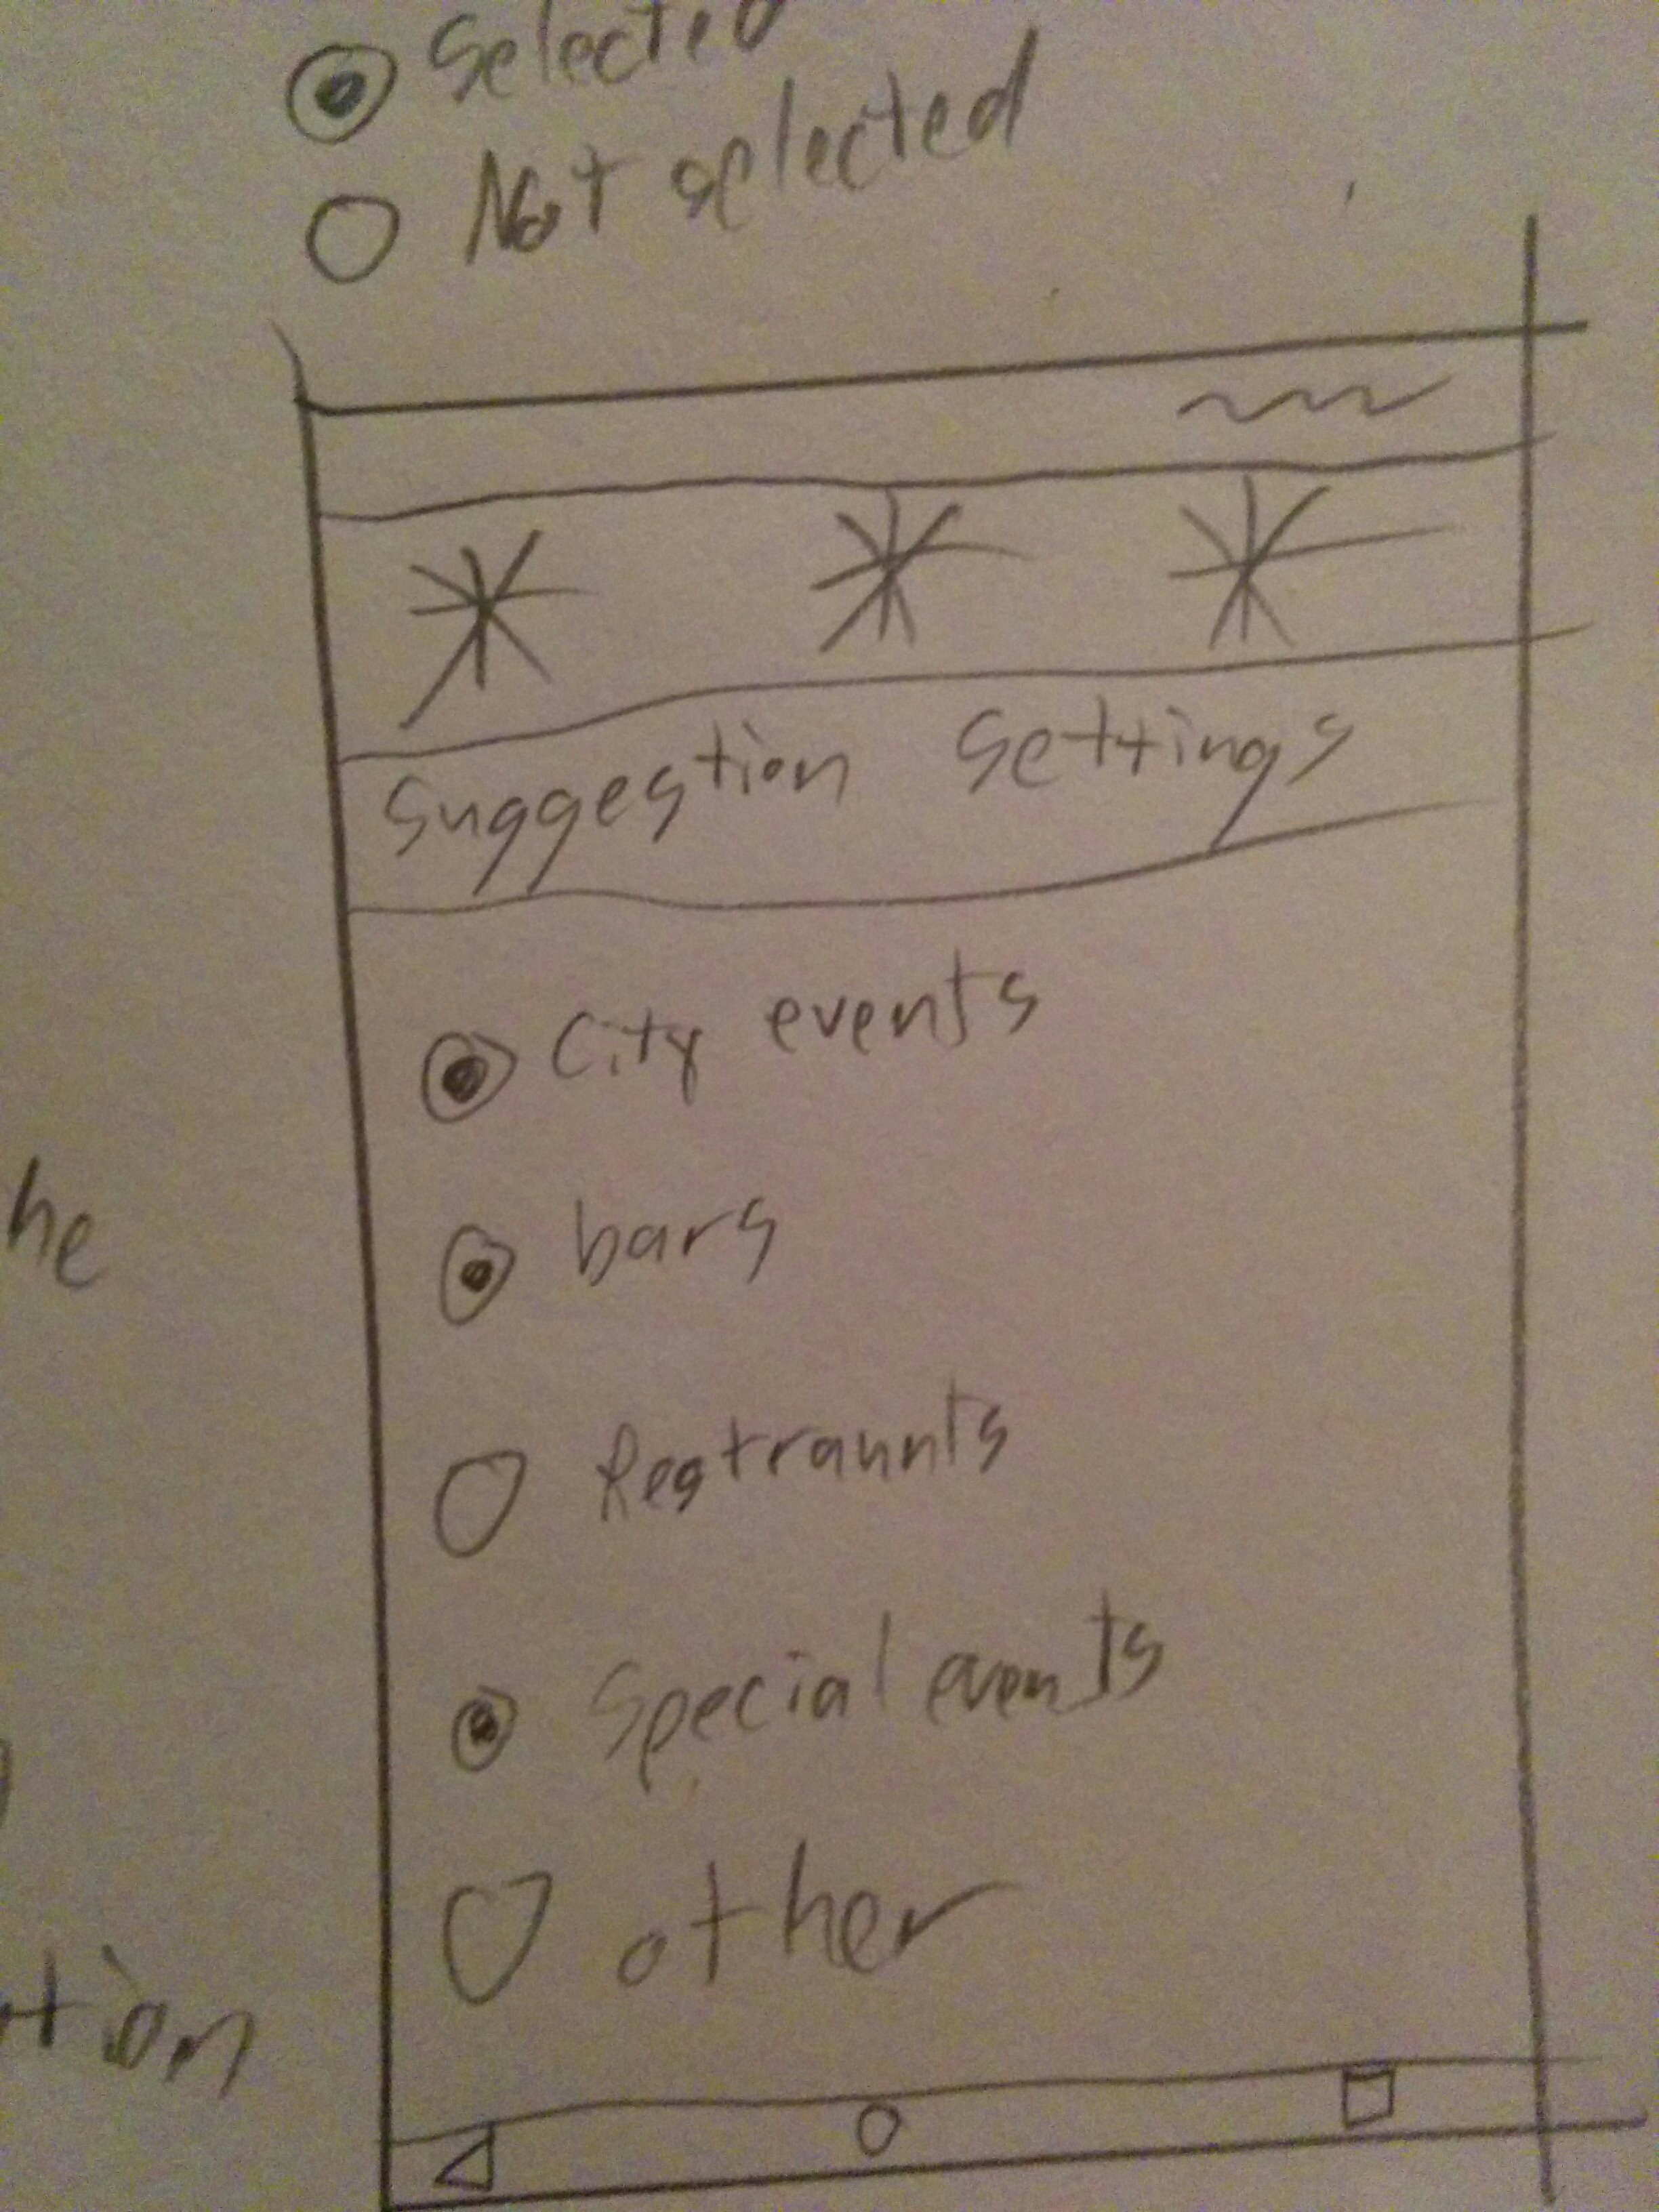 Selected
Not selected
Suggestion Settings
City events
bars
Restraunts
Special events
other
he
tion